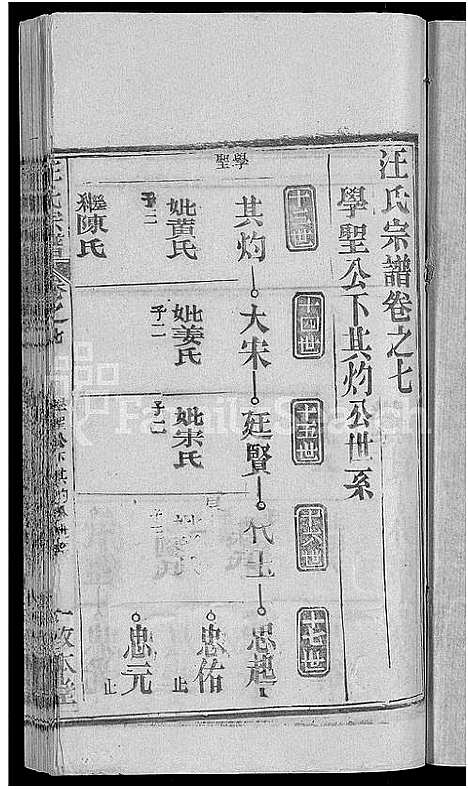 汪氏宗譜卷之七
學聖公下其灼公世系
十三世
十四世
十五世
十六世
十七世
學聖
其灼
大宋
廷賢
代
忠
妣黄氏
子三
妣姜氏
子二
妣宋氏
子二
忠佑
止
繼陳氏
忠元
止
汪氏宗譜
卷之七
學聖公下其灼
一
敦本堂
FamilySearch